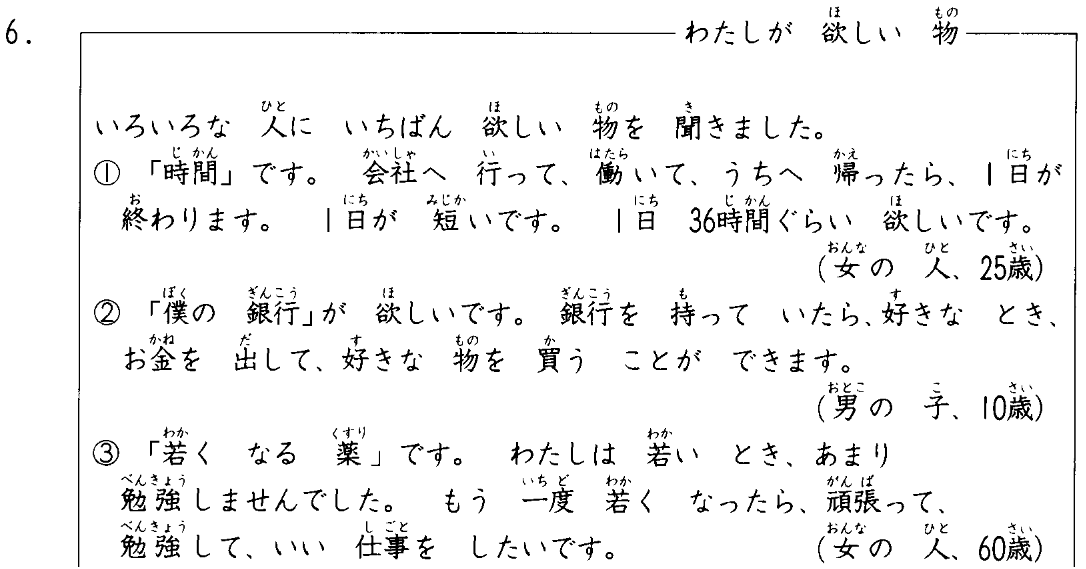 6. わたしが 欲しい 物
いろいろな 人に いちばん 欲しい 物を 聞きました。
① 「時間」です。 会社へ 行って、働いて、うちへ 帰ったら、1日が
終わります。 1日が 短いです。 1日 36時間ぐらい 欲しいです。
(女の 人、25歳)
② 「僕の 銀行」が 欲しいです。 銀行を 持って いたら、好きな とき、
お金を 出して、好きな 物を 買う ことが できます。
(男の 子、10歳)
③ 「若く なる 薬」です。 わたしは 若い とき、あまり
勉強しませんでした。 もう 一度 若く なったら、頑張って、
勉強して、いい 仕事を したいです。 (女の 人、60歳)